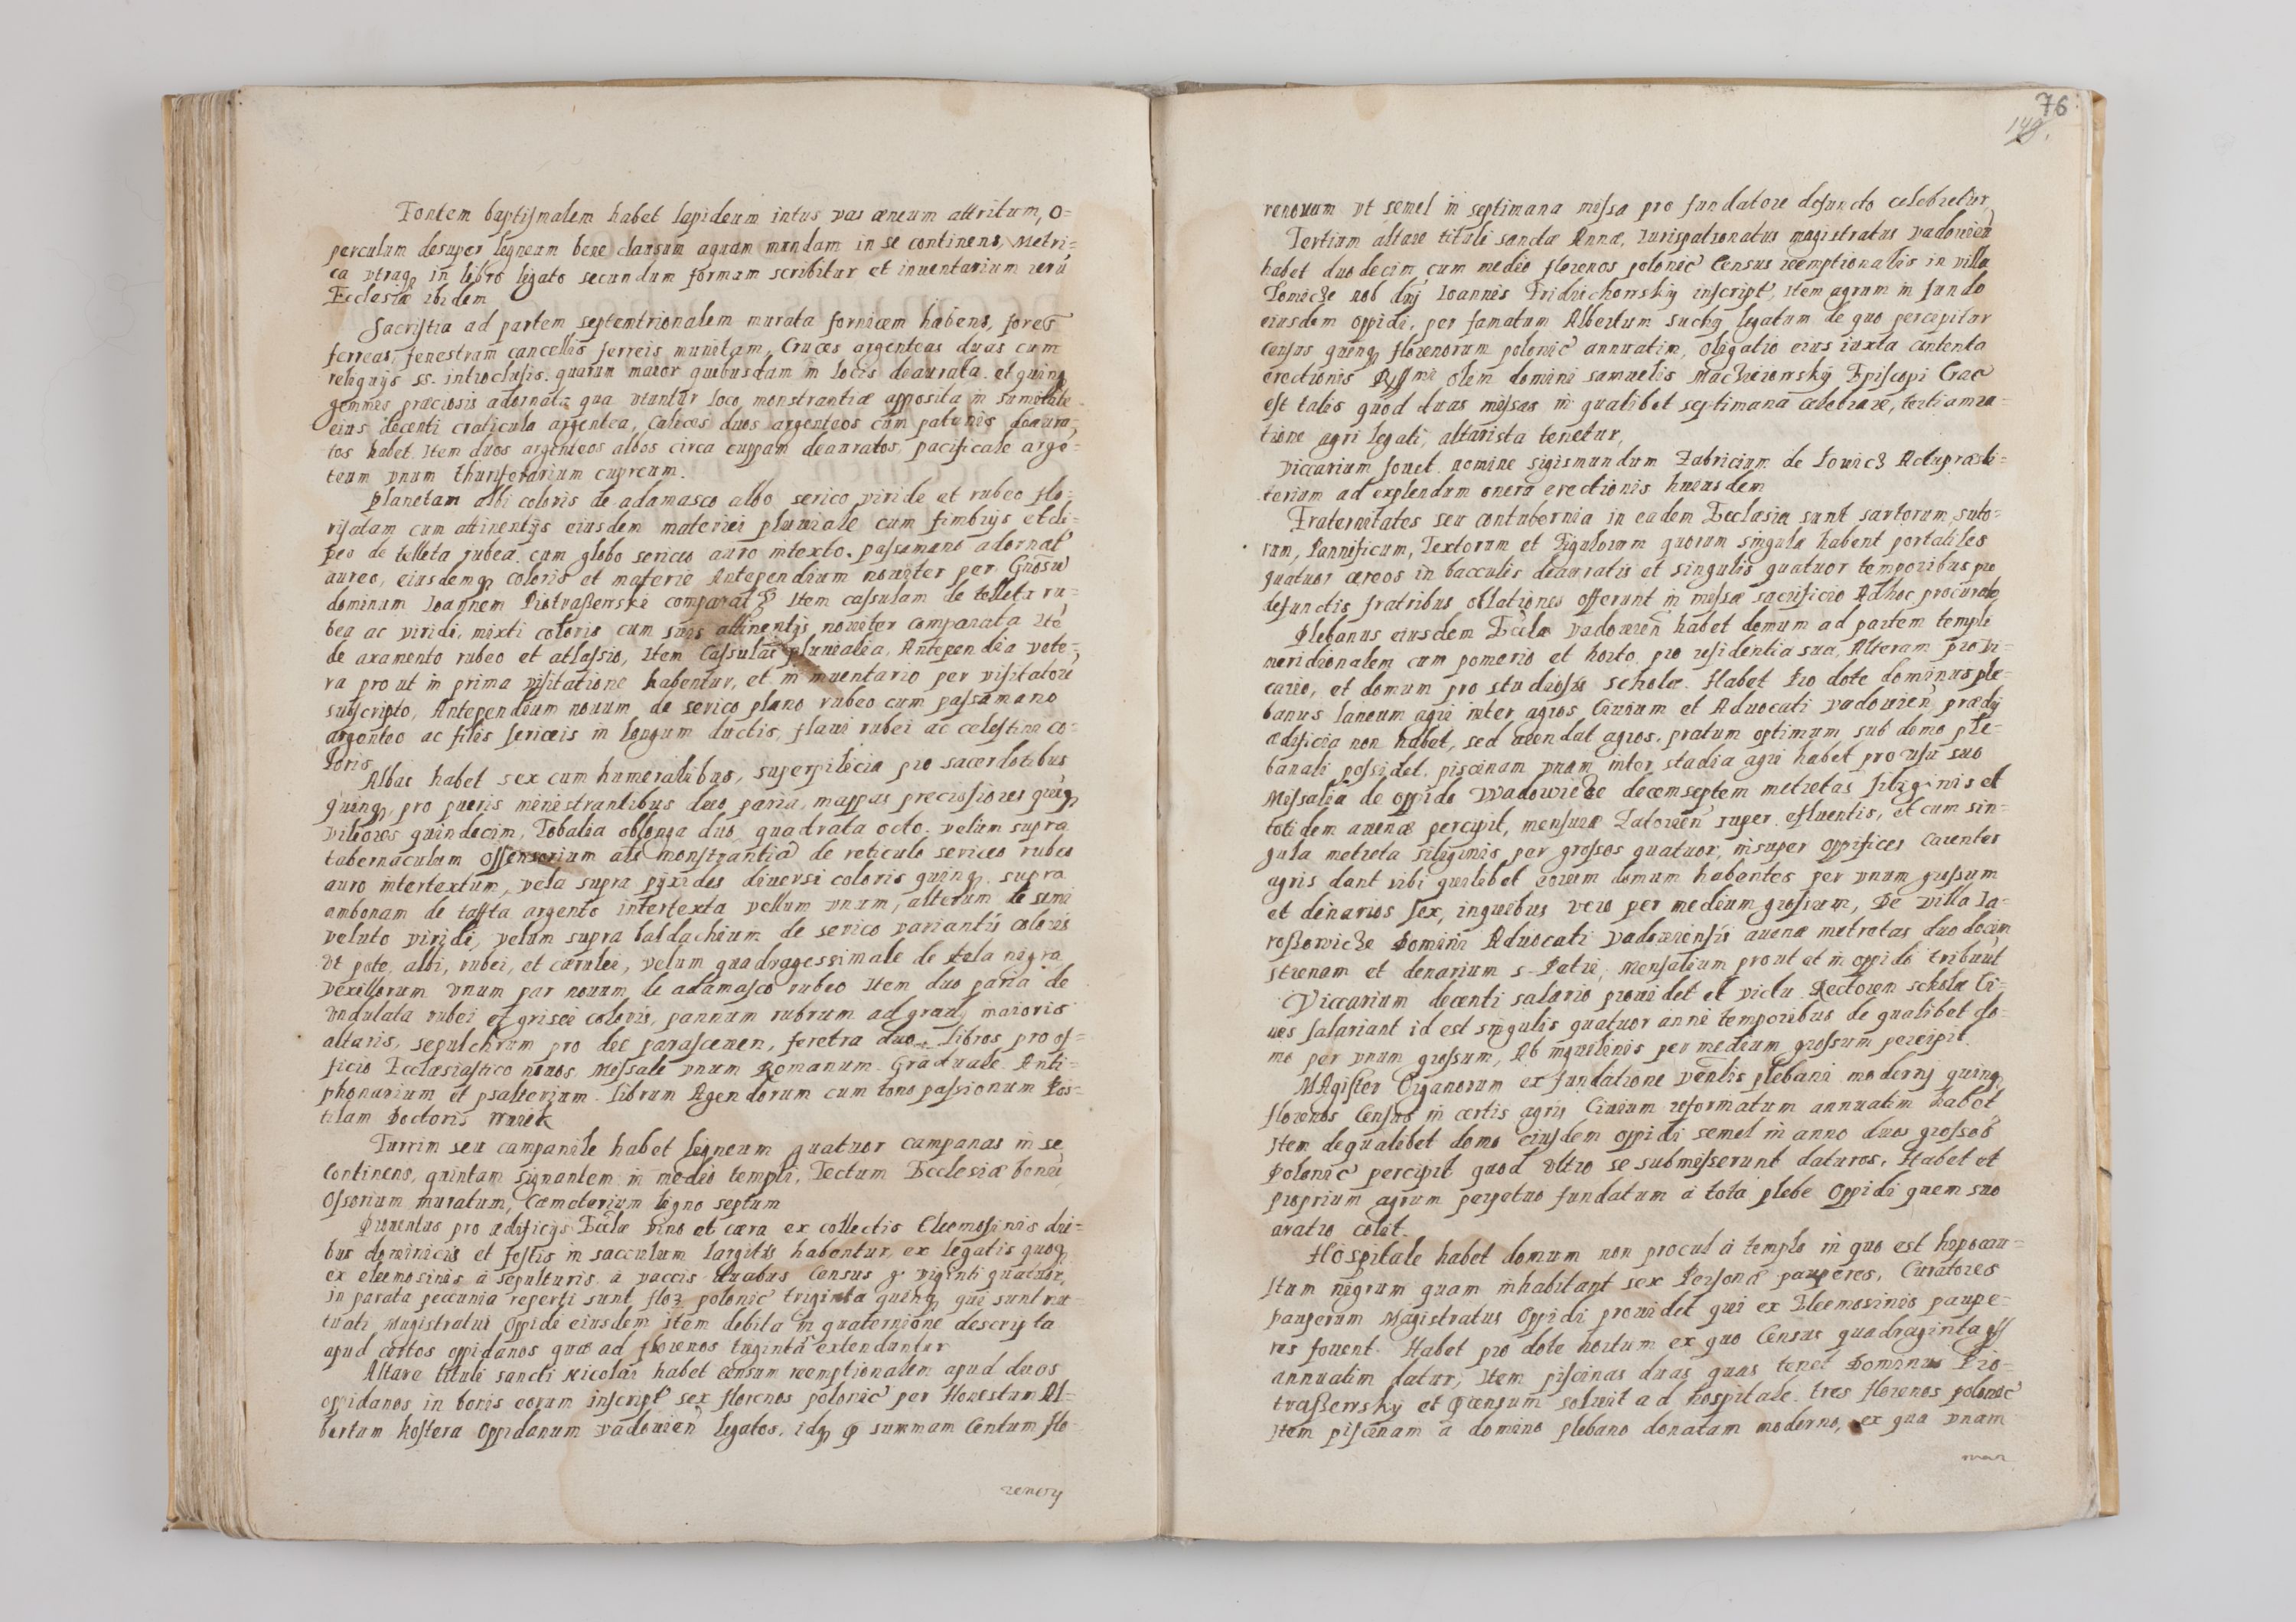 Fontem baptismalem habet lapideum intus vas æneum attritum, o=
perculum desuper ligneum bene clausum aquam mundam in se continens, Metri=
ca vtraq in libro ligato secundum formam scribitur et inuentarium rerū
Ecclesiæ ibidem
Sacristia ad partem septemtrionalem murata fornicem habens, fores
ferreas, fenestram cancellis ferreis munitam, Cruces argenteas duas cum
reliquijs ss. introclusis. quarum maior quibusdam in locis deaurata et quinq
gemmis præciosis adornata qua vtuntur loco monstrantiæ apposita in sumitate
eius decenti craticula argentea, Calices duos argenteos cum patenis deaura,
tos habet. Item duos argenteos albos circa cuppam deauratos, pacificale argē=
teum vnum thuriferarium cupreum.
Planetam albi coloris de adamasco albo serico viride et rubeo flo=
risatam cum attinentijs eiusdem materiei pluuiale cum fimbrijs et cli=
peo de telleta rubea cum globo sericeo auro intexto. passamano adornat
aureo, eiusdemq coloris et materie Antependium nouiter per Gnosū
dominum Ioannem Piotraszewski comparat Item casulam de telleta ru=
bea ac viridi, mixti coloris cum suis attinentijs nouiter comparata Itē
de axamento rubeo et atlassio, Item Casulas pluuialia, Antependia vete=
ra pro ut in prima visitatione habentur, et in inuentario per visitatore
suscripto, Antependium nouum de serico plano rubeo cum passamano
argenteo ac filis sericeis in longum ductis, flaui rubei ac celestini co=
loris
Albas habet sex cum humeralibus, superpilicia pro sacerdotibus
quinq, pro pueris ministrantibus duo paria, mappas preciosiores quinq
viliores quindecim, Tobalia oblonga duo quadrata octo. velum supra
tabernaculum ossensorium als monstrantia de reticulo sericeo rubeo
auro intertextum, vela supra pyxides diuersi coloris quinq. supra
ambonam de taffta argento intertexta vellum vnum, alterum de semi
veluto viridi, velum supra baldachium de serico variantis coloris
vt pote, albi, rubei, et cærulei, velum quadragessimale de tela nigra
vexillorum vnum par nouum de adamasco rubeo Item duo paria de
vndulata rubei et grisei coloris, pannum rubrum ad gradᵍ maioris
altaris, sepulchrum pro die parasceuen, feretra duo. Libros pro of=
ficio Ecclæsiastico nouos. Missale vnum Romanum. Graduale Anti=
phonarium et psalterium. librum Agendorum cum tono passionum Pos=
tilam Doctoris Wuiek
Turrim seu campanile habet ligneum quatuor campanas in se
continens, quintam signantem in medio templi, Tectum Ecclesiæ bonū
Ossorium muratum, Cæmeterium ligno septum
Prouentus pro ædificijs Eccæ vino et cæra ex collectis Eleemosinis die=
bus dominicis et festis in sacculum largitis habentur, ex legatis quoq
ex eleemosinis a sepulturis. a vaccis duabus Census gr viginti quatuor,
in parata peccunia reperti sunt flo polonic triginta quinq qui sunt mu=
tuati Magistratui Oppidi eiusdem item debita in quaternione descripta
apud certos oppidanos quæ ad florenos triginta extenduntur
Altare tituli sancti Nicolai habet censum reemptionalem apud duos
oppidanos in bonis eorum inscript sex florenos polonic per Honestum Al=
bertum Kostera Oppidanum Vadouien legatos, idq summam Centum flo
renorū
76
148.
renorum vt semel in septimana missa pro fundatore defuncto celebretur,
Tertium altare tituli sanctæ Annæ, Iurispatronatus magistratus Vadouien
habet duodecim cum medio florenos polonic Census reemptionalis in villa
Tomicze nob dnj Ioannis Fridrichowskij inscript, Item agrum in fundo
eiusdem oppidi, per famatum Albertum Suchy legatum de quo percipitur
Census quinq florenorum polonic annuatim, Oligatio eius iuxta contenta
erectionis Rssmi olem domini Samuelis Macheiowskij Episcopi Crac
est talis quod duas missas in qualibet septimana celebrare, tertiam ra=
tione agri legati, altarista tenetur,
Viccarium fouet nomine Sigismundum Fabricium de Lowicz Actu præsbi=
terium ad explendum onera erectionis huiusdem
Fraternitates seu contubernia in eadem Ecclesia sunt sartorum, suto=
rum, Pannificum, Textorum et Figulorum quorum singula habent portatiles
quatuor cereos in bacculis deauratis et singulis quatuor temporibus pro
defunctis fratribus oblationes offerunt in missæ sacrificio Ad hoc procurato
Plebanus eiusdem Ecclæ Vadouien habet domum ad partem templi
meridionalem cum pomerio et horto pro residentia sua, Alteram pro vi=
cario, et domum pro studiosis scholæ. Habet Pro dote dominus ple=
banus laneum agri inter agros Ciuium et Aduocati Vadouien, prædij
ædificia non habet, sed arendat agros, pratum optimum sub domo ple=
banali possidet. piscinam vnam inter stadia agri habet pro usu suo
Missalia de oppido Wadowicze decemseptem metretas siliginis et
totidem auenæ percipit, mensuræ Zatorien super efluentis, et cum sin=
gula metreta siliginis per grossos quatuor, insuper oppifices carentes
agris dant sibi quilibet eorum domum habentes per vnum grossum
et denarios sex, inquilibus vero per medium grossum, De villa Ia=
roszowicze Domini Aduocati Vadouiensis auenæ metretas duodecim
strenam et denarium S. Petri, Mensalium prout et in oppido tribuūt
Viccarium decenti salario prouidet et victu Rectorem scholæ Ci=
ues salariant id est singulis quatuor anni temporibus de qualibet do=
mo per vnum grossum, Ab inquilinis per medium grossum percipit
MAgister Organorum ex fundatione Venlis plebani modernj quinq
florenos Census in certis agris Ciuium reformatum annuatim habet,
Item de qualibet domo eiusdem oppidi semel in anno duos grossos
Polonic percipit quod vltro se submisserunt daturos. Habet et
proprium agrum perpetuo fundatum a tota plebe Oppidi quem suo
aratro colit.
Hospitale habet domum non procul a templo in quo est hipocau=
stum nigrum quam inhabitant sex Personæ pauperes, Curatores
pauperum Magistratus Oppidi prouidet qui ex Eleemosinis paupe=
res fouent. Habet pro dote hortum ex quo Census quadraginta
annuatim datur, Item piscinas duas quas tenet Dominus Pio=
traszewskij et censum soluit ad hospitale tres florenos polonic
Item piscinam a domino plebano donatam moderno, ex qua vnam